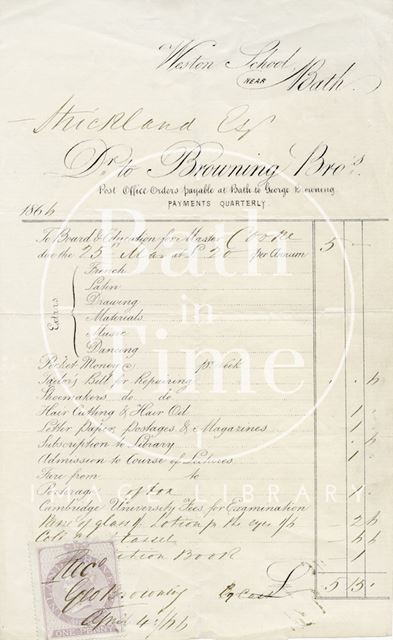 Weston School
NEAR Bath.
Strickland Esq
Dr. to Browning Bros.
Post Office Orders payable at Bath to George Browning
PAYMENTS QUARTERLY.
186
To Board & Education for Master Cooke 5
due the 25 Mar at £20 per Annum
Extras
French
Latin
Drawing
Materials
Music
Dancing
Pocket Money @ pr week
Tailors Bill for Repairing
Shoemakers do do
Hair Cutting & Hair Oil 1
Letter Paper, Postages & Magazines 1
Subscription to Library
Admission to Course of Lectures 1
Fare from to
Porterage of box
Cambridge University Fees, for Examination
glass & Lotion for the eyes 2
Book 1
£ 5
Recd
Geo Browning
April
ONE PENNY
Bath in Time
IMAGE LIBRARY